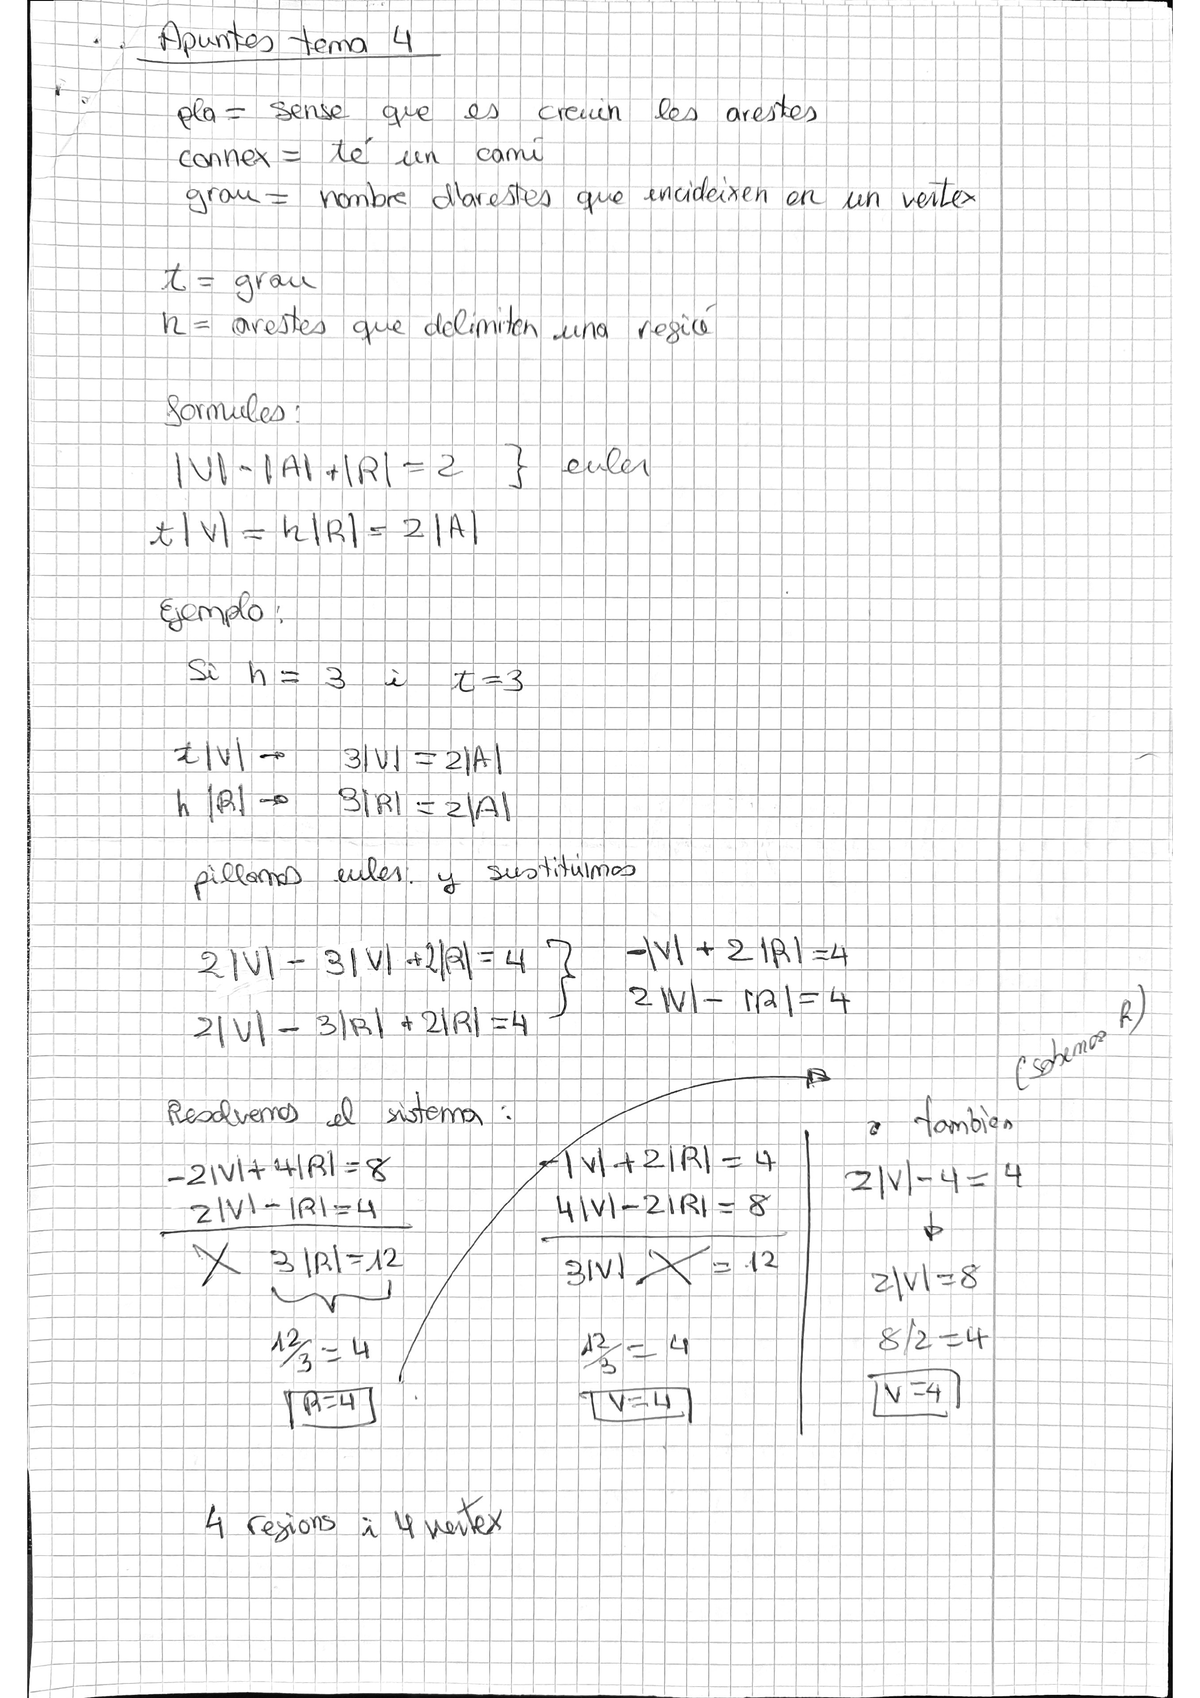 Apuntes tema 4
pla = sense que es creuin les arestes
connex = té un camí
grau = nombre d'arestes que encideixen en un vertex
t = grau
h = arestes que delimiten una regió
formules:
|V| - |A| + |R| = 2 } euler
t|V| = h|R| = 2|A|
Ejemplo:
Si h = 3 i t = 3
t|V| → 3|V| = 2|A|
h|R| → 3|R| = 2|A|
pillamos euler y sustituimos
2|V| - 3|V| + 2|R| = 4 } -|V| + 2|R| = 4
2|V| - 3|R| + 2|R| = 4 2|V| - |R| = 4
Resolvemos el sistema:
-2|V| + 4|R| = 8
2|V| - |R| = 4
X 3|R| = 12
12/3 = 4
R = 4
-|V| + 2|R| = 4
4|V| - 2|R| = 8
3|V| X = 12
12/3 = 4
V = 4
(sabemos R)
o tambien
2|V| - 4 = 4
↓
2|V| = 8
8/2 = 4
V = 4
4 regions i 4 vertex